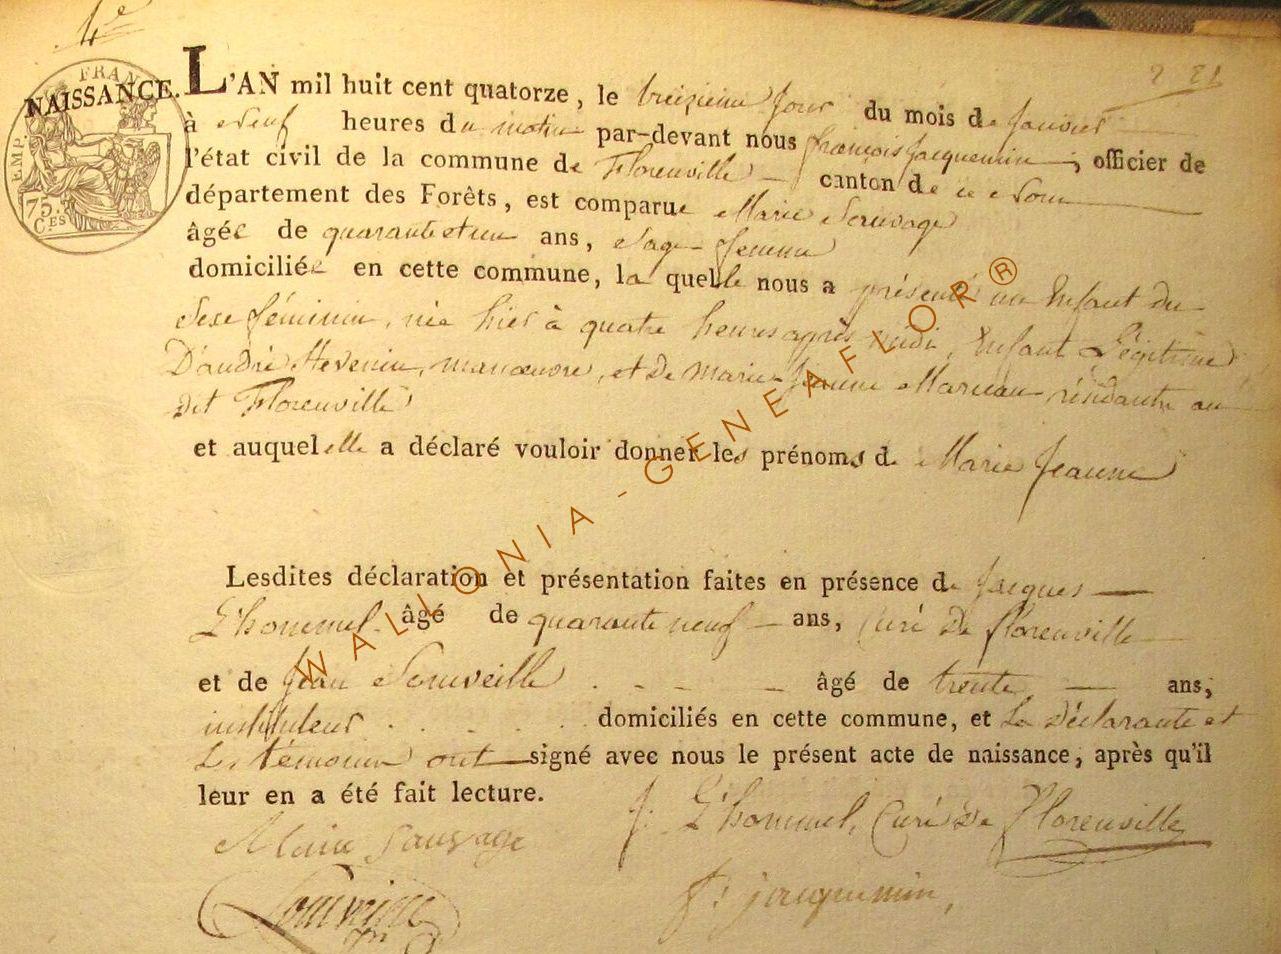 4e
2 21
FRAN
EMP.
75.
CES
NAISSANCE.
L'AN mil huit cent quatorze, le treizieme jour du mois de Janvier
à Neuf heures du matin par-devant nous françois Jacquemin, officier de
l'état civil de la commune de Florenville canton de ce Nom
département des Forêts, est comparue Marie Sauvage
âgée de quarante et un ans, Sage femme
domiciliée en cette commune, la quelle nous a présenté un Enfant du
Sexe féminin, née hier à quatre heures après midi, Enfant Légitime
D'andré Hevenin, manœuvre, et de marie-jeanne Marneau résidante au
dit Florenville
et auquel elle a déclaré vouloir donner les prénoms de Marie Jeanne
Lesdites déclaration et présentation faites en présence de Jacques
L'hommel âgé de quarante neuf ans, Curé de florenville
et de Jean Souveille âgé de trente ans,
instituteur domiciliés en cette commune, et La déclarante et
Les témoins ont signé avec nous le présent acte de naissance, après qu'il
leur en a été fait lecture.
J. L'hommel, Curé de Florenville
Marie Sauvage
f: jacquemin,
WALLONIA-GENEAFLOR®